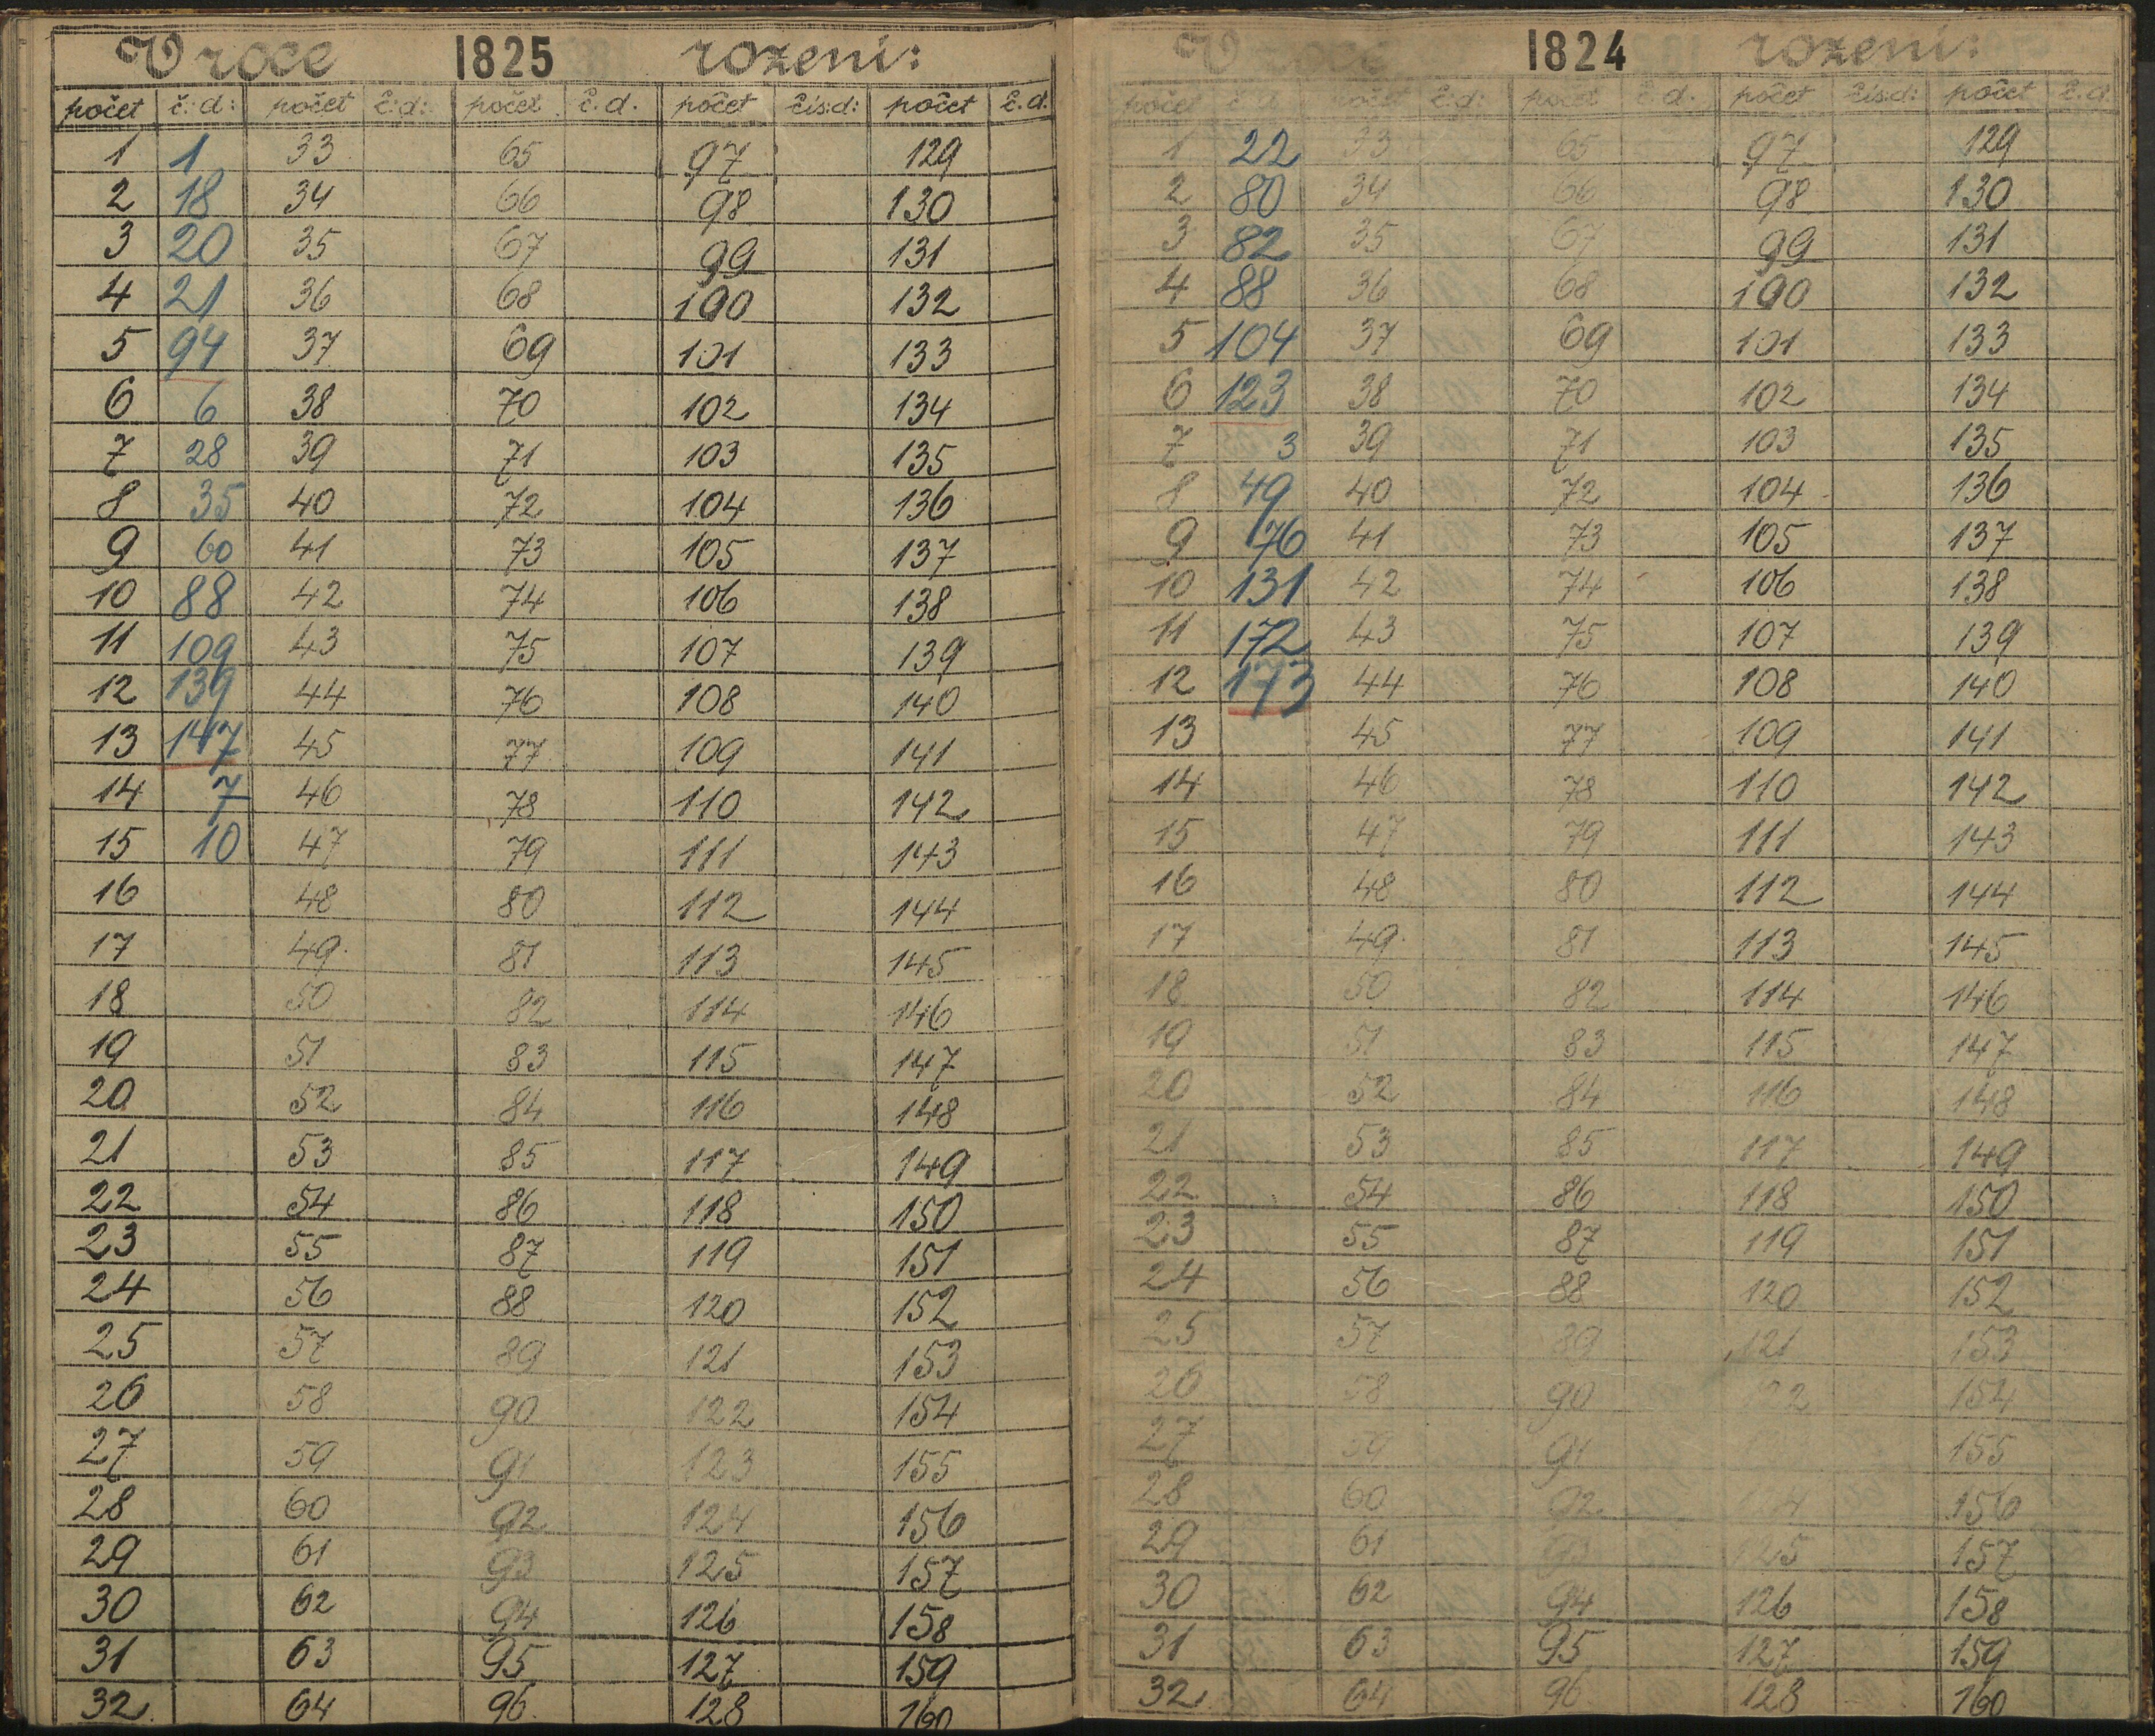 V roce 1825 rozeni:
počet č: d: počet č:d: počet č. d. počet čis:d: počet č. d.
1 1 33 65 97 129
2 18 34 66 98 130
3 20 35 67 99 131
4 21 36 68 100 132
5 94 37 69 101 133
6 6 38 70 102 134
7 28 39 71 103 135
8 35 40 72 104 136
9 60 41 73 105 137
10 88 42 74 106 138
11 109 43 75 107 139
12 139 44 76 108 140
13 147 45 77 109 141
14 7 46 78 110 142
15 10 47 79 111 143
16 48 80 112 144
17 49 81 113 145
18 50 82 114 146
19 51 83 115 147
20 52 84 116 148
21 53 85 117 149
22 54 86 118 150
23 55 87 119 151
24 56 88 120 152
25 57 89 121 153
26 58 90 122 154
27 59 91 123 155
28 60 92 124 156
29 61 93 125 157
30 62 94 126 158
31 63 95 127 159
32 64 96 128 160
V roce 1824 rozeni:
počet č: d: počet č:d: počet č. d. počet čis:d: počet č. d.
1 22 33 65 97 129
2 80 34 66 98 130
3 82 35 67 99 131
4 88 36 68 100 132
5 104 37 69 101 133
6 123 38 70 102 134
7 3 39 71 103 135
8 49 40 72 104 136
9 76 41 73 105 137
10 131 42 74 106 138
11 172 43 75 107 139
12 173 44 76 108 140
13 45 77 109 141
14 46 78 110 142
15 47 79 111 143
16 48 80 112 144
17 49 81 113 145
18 50 82 114 146
19 51 83 115 147
20 52 84 116 148
21 53 85 117 149
22 54 86 118 150
23 55 87 119 151
24 56 88 120 152
25 57 89 121 153
26 58 90 122 154
27 59 91 155
28 60 92 156
29 61 93 125 157
30 62 94 126 158
31 63 95 127 159
32 64 96 128 160